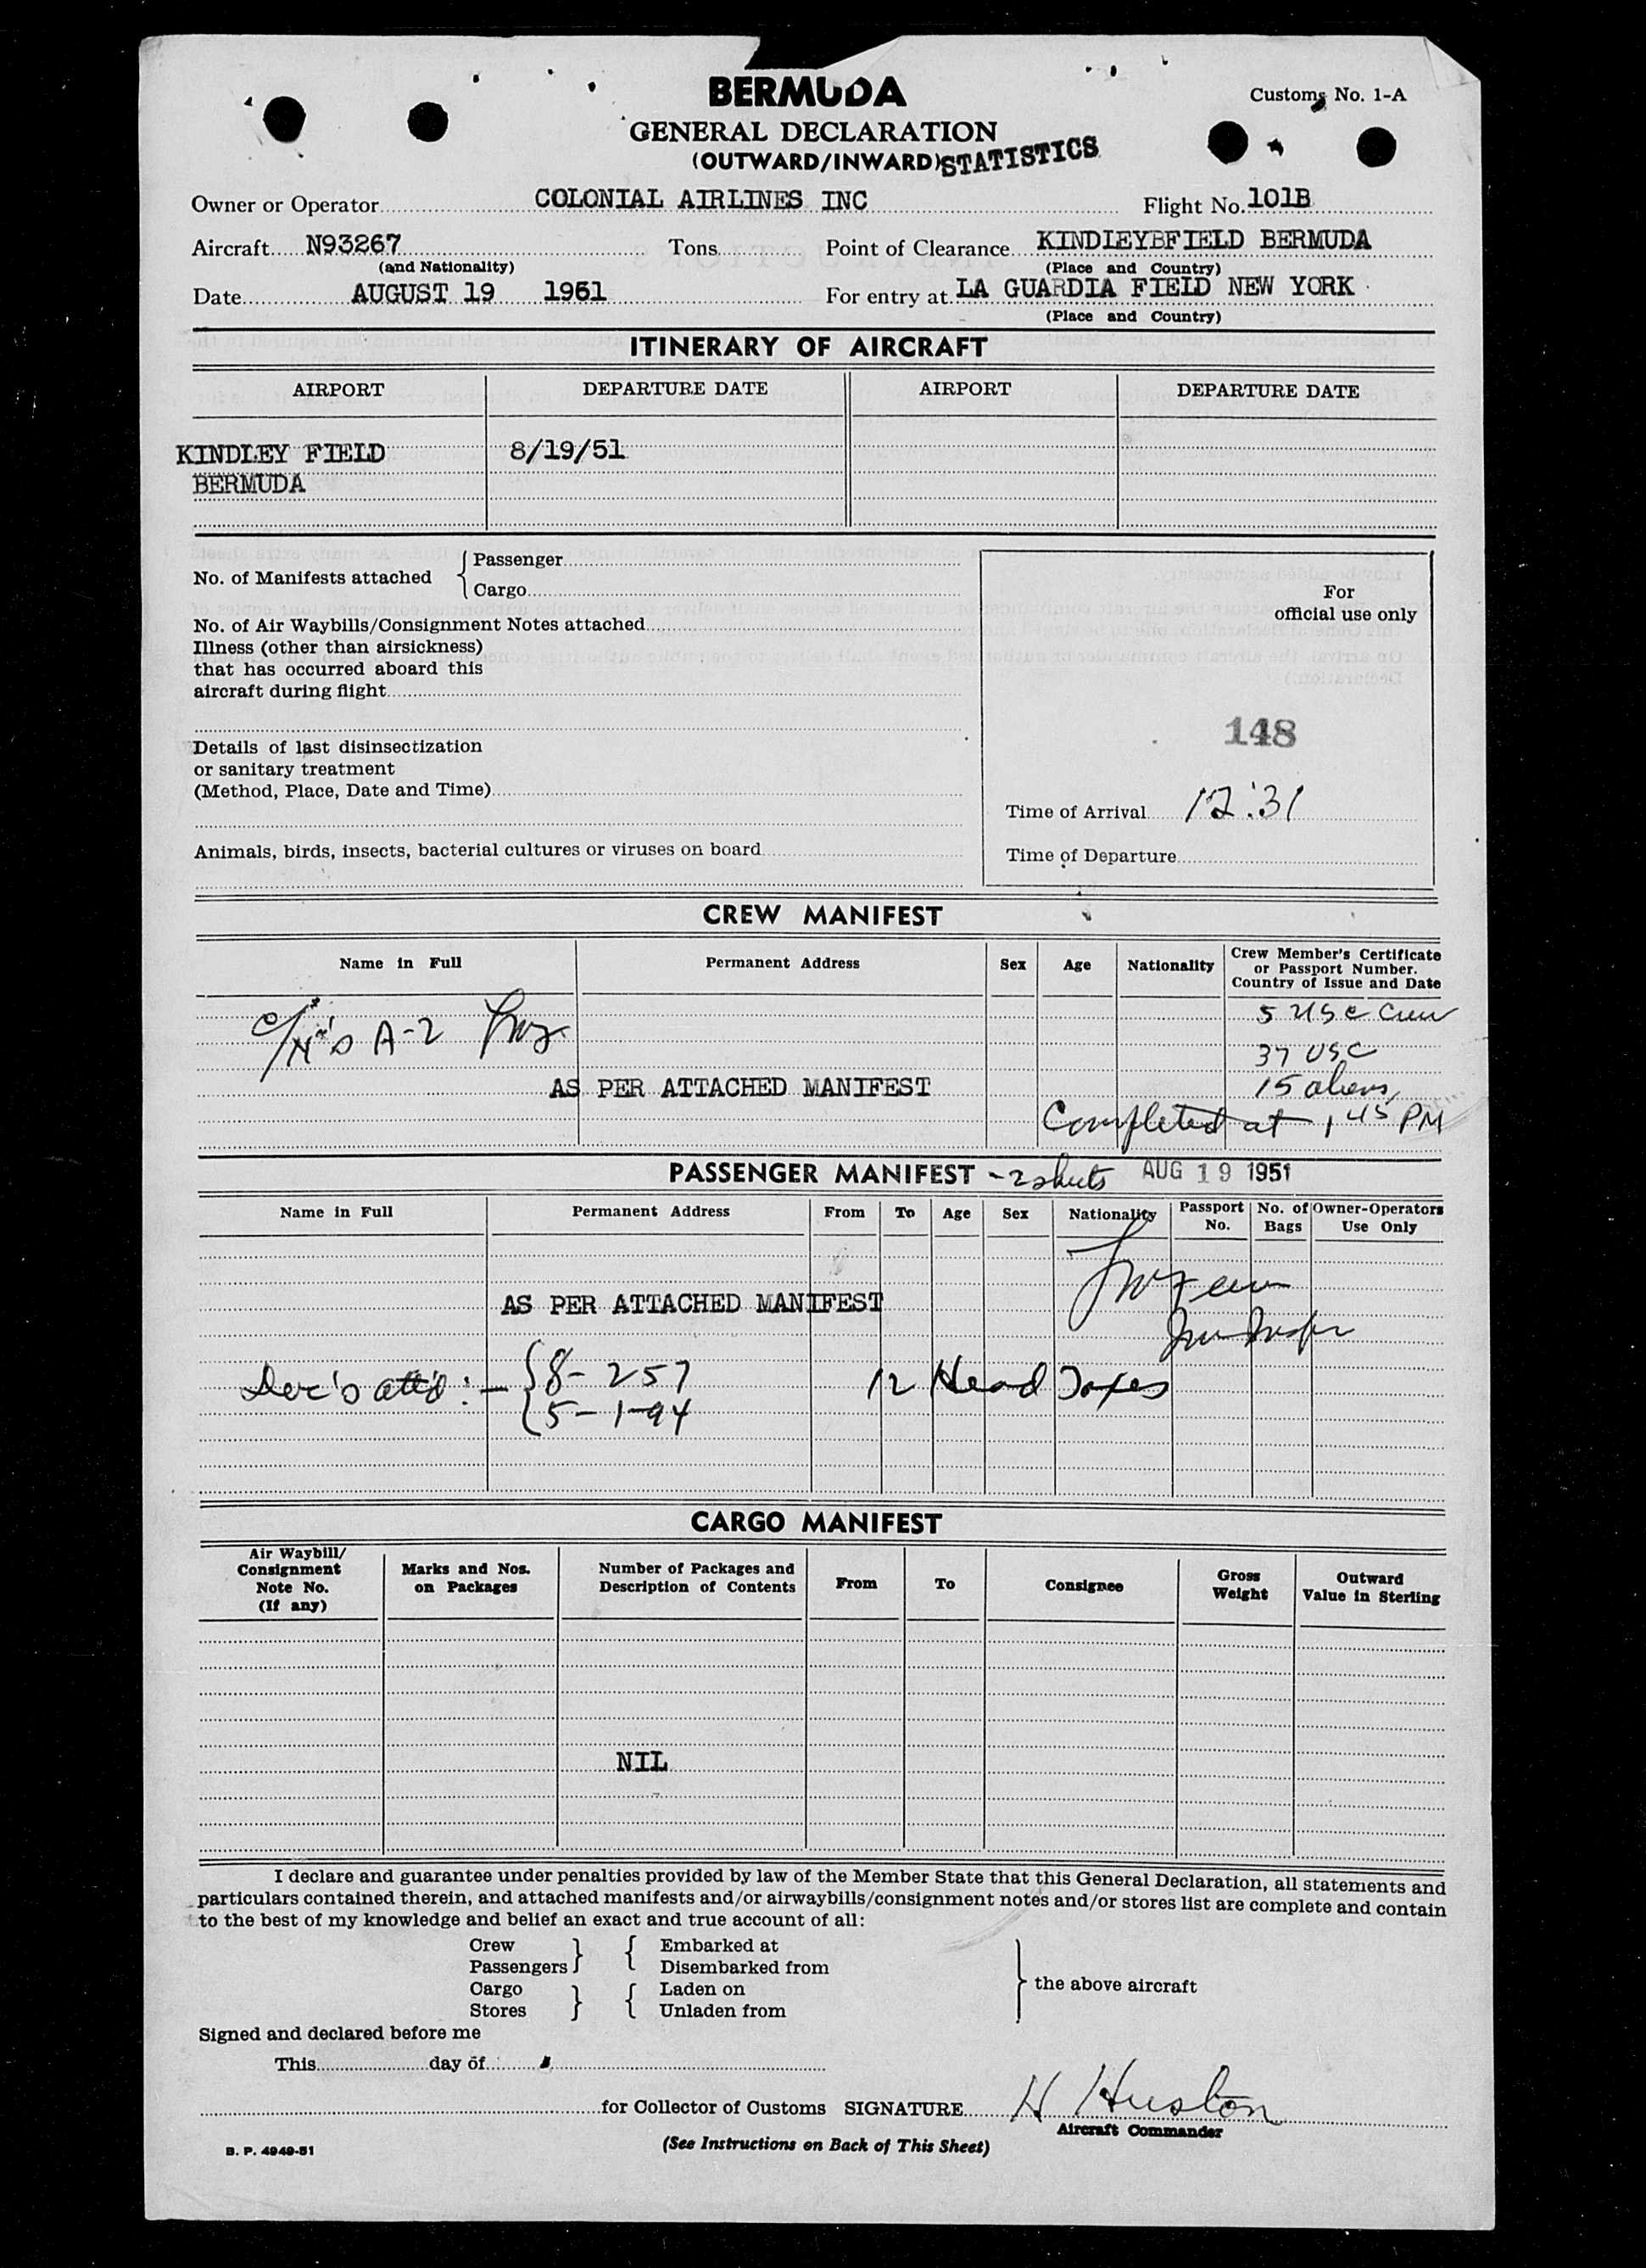 BERMUDA
Customs No. 1-A
GENERAL DECLARATION
(OUTWARD/INWARD) STATISTICS
Owner or Operator COLONIAL AIRLINES INC Flight No. 101B
Aircraft N93267 Tons Point of Clearance KINDLEYBFIELD BERMUDA
(and Nationality) (Place and Country)
Date AUGUST 19 1951 For entry at LA GUARDIA FIELD NEW YORK
(Place and Country)
ITINERARY OF AIRCRAFT
AIRPORT DEPARTURE DATE AIRPORT DEPARTURE DATE
KINDLEY FIELD 8/19/51
BERMUDA
No. of Manifests attached { Passenger
Cargo
For
official use only
No. of Air Waybills/Consignment Notes attached
Illness (other than airsickness)
that has occurred aboard this
aircraft during flight
148
Details of last disinsectization
or sanitary treatment
(Method, Place, Date and Time)
Time of Arrival 12:31
Animals, birds, insects, bacterial cultures or viruses on board
Time of Departure
CREW MANIFEST
Name in Full Permanent Address Sex Age Nationality Crew Member's Certificate
or Passport Number.
Country of Issue and Date
5 USC Crew
A-2
37 USC
AS PER ATTACHED MANIFEST 15 aliens
Completed at 1 45 PM
PASSENGER MANIFEST - 2 sheets AUG 19 1951
Name in Full Permanent Address From To Age Sex Nationality Passport No. No. of Bags Owner-Operators Use Only
AS PER ATTACHED MANIFEST
Doc's att'd: - { 8 - 257 12 Head Taxes
5 - 1-94
CARGO MANIFEST
Air Waybill/
Consignment
Note No.
(If any)
Marks and Nos.
on Packages
Number of Packages and
Description of Contents
From To Consignee
Gross
Weight
Outward
Value in Sterling
NIL
I declare and guarantee under penalties provided by law of the Member State that this General Declaration, all statements and
particulars contained therein, and attached manifests and/or airwaybills/consignment notes and/or stores list are complete and contain
to the best of my knowledge and belief an exact and true account of all:
Crew } { Embarked at
Passengers Disembarked from
Cargo } { Laden on } the above aircraft
Stores Unladen from
Signed and declared before me
This day of
for Collector of Customs SIGNATURE H Huston
Aircraft Commander
B. P. 4949-51
(See Instructions on Back of This Sheet)